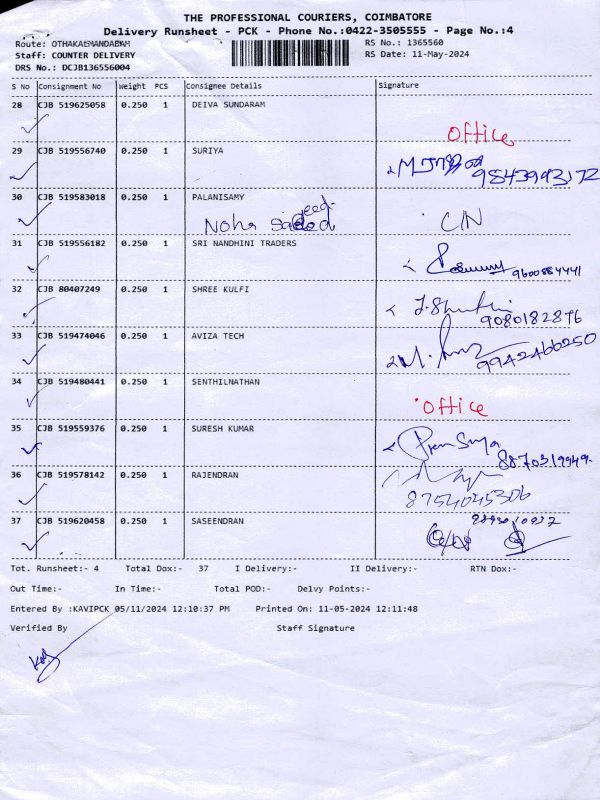 THE PROFESSIONAL COURIERS, COIMBATORE
Delivery Runsheet - PCK - Phone No.:0422-3505555 - Page No.:4
Route: OTHAKALMANDABAM
RS No.: 1365560
Staff: COUNTER DELIVERY
RS Date: 11-May-2024
DRS No.: DCJB136556004
S No Consignment No Weight PCS Consignee Details Signature
28 CJB 519625058 0.250 1 DEIVA SUNDARAM
Office
29 CJB 519556740 0.250 1 SURIYA
9843993172
30 CJB 519583018 0.250 1 PALANISAMY
Noha C/N
31 CJB 519556182 0.250 1 SRI NANDHINI TRADERS
9600884441
32 CJB 80407249 0.250 1 SHREE KULFI
9080182876
33 CJB 519474046 0.250 1 AVIZA TECH
9942466250
34 CJB 519480441 0.250 1 SENTHILNATHAN
Office
35 CJB 519559376 0.250 1 SURESH KUMAR
8870319949
36 CJB 519578142 0.250 1 RAJENDRAN
8754045306
37 CJB 519620458 0.250 1 SASEENDRAN
Tot. Runsheet:- 4 Total Dox:- 37 I Delivery:- II Delivery:- RTN Dox:-
Out Time:- In Time:- Total POD:- Delvy Points:-
Entered By :KAVIPCK 05/11/2024 12:10:37 PM Printed On: 11-05-2024 12:11:48
Verified By Staff Signature